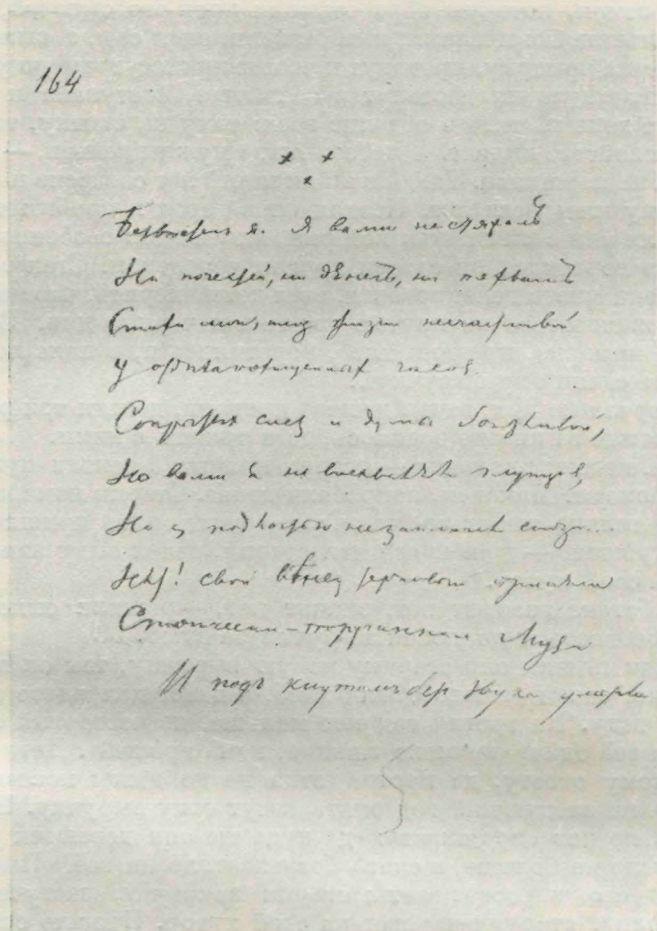 164
× ×
×
Безвестен я. Я вами не стяжалъ
Ни почестей, ни денегъ, ни похвалъ
Стихи мои, плод жизни несчастливой
У отдыха похищенных часов.
Сокрытых слез и думы боязливой,
Но вами я не восхвалял глупцов,
Но с подлостью не заключал союза...
Нет! свой вѣнец терновый приняла
Стоически-поруганная Муза
И подъ кнутомъ без звука умерла